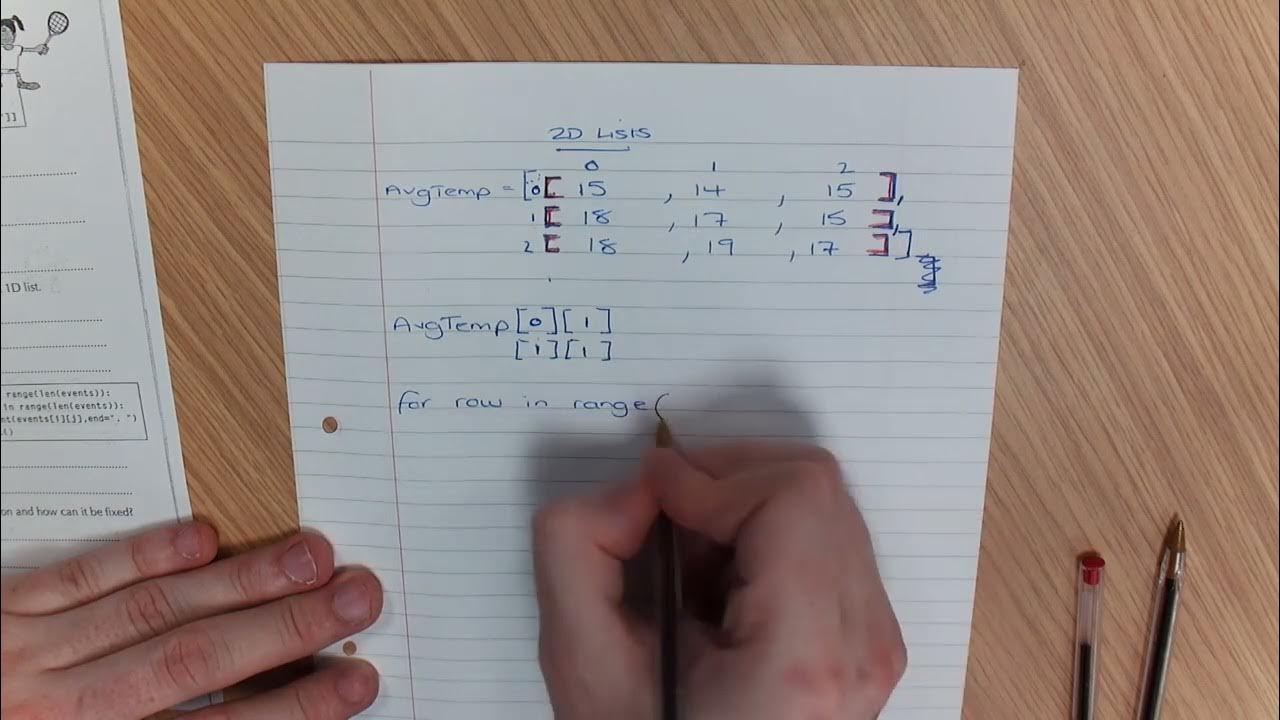 2D Lists
0 1 2
AvgTemp = [0[ 15 , 14 , 15 ],
1 [ 18 , 17 , 15 ],
2 [ 18 , 19 , 17 ]]
AvgTemp[0][1]
[i][1]
for row in range(
']]
1D list.
range(len(events)):
in range(len(events)):
nt(events[i][j],end=", ")
()
on and how can it be fixed?